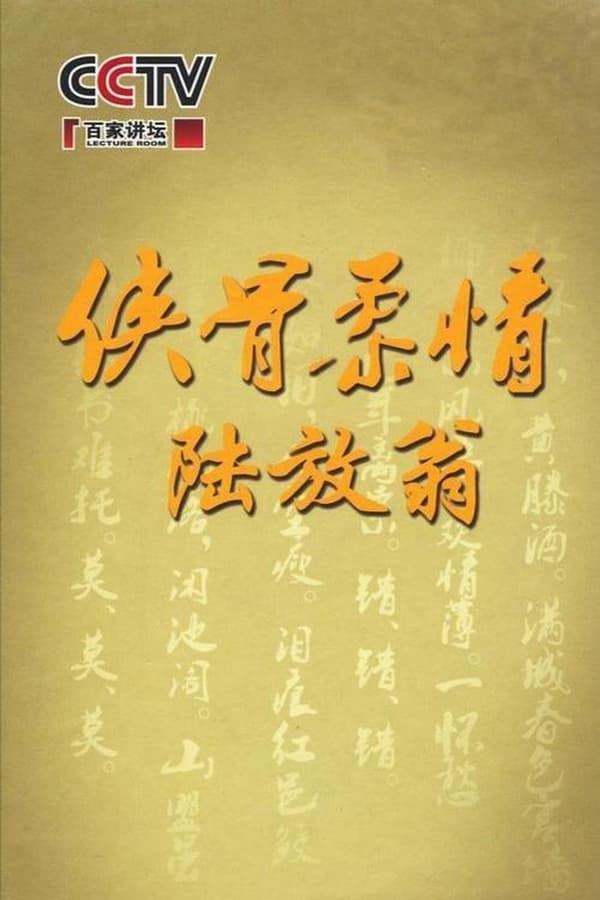 CCTV
百家讲坛
LECTURE ROOM
侠骨柔情
陆放翁
手,黄滕酒。满城春色宫墙
柳 风 欢情薄。一怀愁
年离索。错、错、错。
空瘦。泪痕红浥鲛
桃 落,闲池阁。山盟虽
书难托。莫、莫、莫。